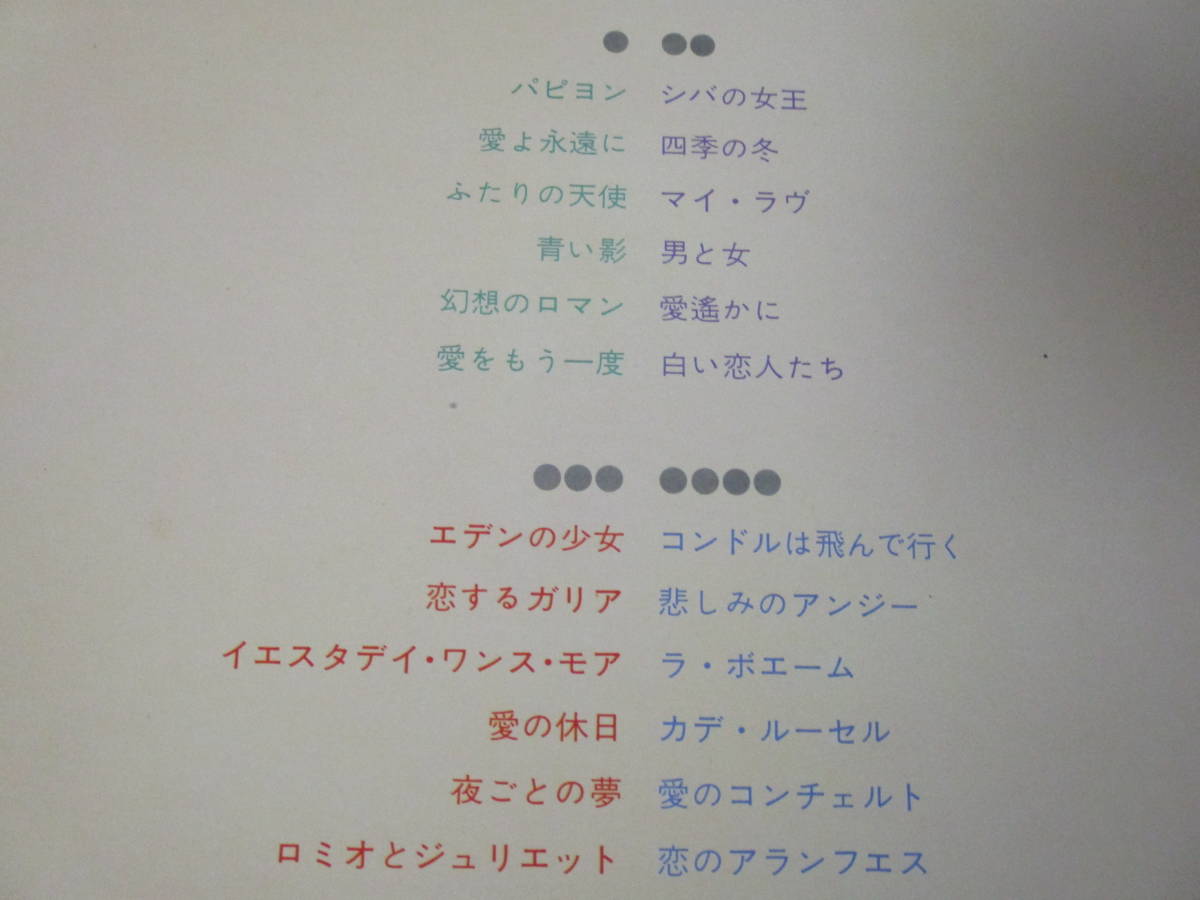 パピヨン
愛よ永遠に
ふたりの天使
青い影
幻想のロマン
愛をもう一度
シバの女王
四季の冬
マイ・ラヴ
男と女
愛遙かに
白い恋人たち
エデンの少女
恋するガリア
イエスタデイ・ワンス・モア
愛の休日
夜ごとの夢
ロミオとジュリエット
コンドルは飛んで行く
悲しみのアンジー
ラ・ボエーム
カデ・ルーセル
愛のコンチェルト
恋のアランフエス